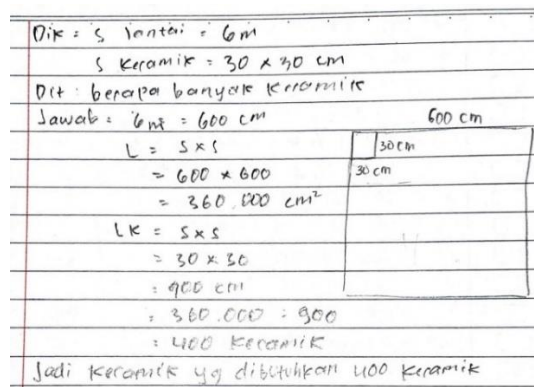 Dik : s lantai = 6m
s keramik = 30 x 30 cm
Dit : berapa banyak keramik
Jawab = 6 m = 600 cm
600 cm
L = s x s
30 cm
= 600 x 600
30 cm
= 360.000 cm²
LK = s x s
= 30 x 30
= 900 cm
= 360.000 : 900
= 400 keramik
Jadi keramik yg dibutuhkan 400 keramik